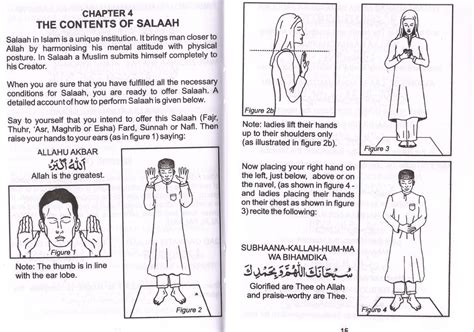 CHAPTER 4
THE CONTENTS OF SALAAH
Salaah in Islam is a unique institution. It brings man closer to
Allah by harmonising his mental attitude with physical
posture. In Salaah a Muslim submits himself completely to
his Creator.
When you are sure that you have fulfilled all the necessary
conditions for Salaah, you are ready to offer Salaah. A
detailed account of how to perform Salaah is given below.
Say to yourself that you intend to offer this Salaah (Fajr,
Thuhr, 'Asr, Maghrib or Esha) Fard, Sunnah or Nafl. Then
raise your hands to your ears (as in figure 1) saying:
ALLAHU AKBAR
اَللّٰهُ اَكْبَرُ
Allah is the greatest.
Figure 1
Note: The thumb is in line
with the ear lobe.
Figure 2
Figure 2b
Note: ladies lift their hands
up to their shoulders only
(as illustrated in figure 2b).
Figure 3
Now placing your right hand on
the left, just below, above or on
the navel, (as shown in figure 4 -
and ladies placing their hands
on their chest as shown in figure
3) recite the following:
SUBHAANA-KALLAH-HUM-MA
WA BIHAMDIKA
سُبْحَانَكَ اللّٰهُمَّ وَبِحَمْدِكَ
Glorified are Thee oh Allah
and praise-worthy are Thee.
Figure 4
15